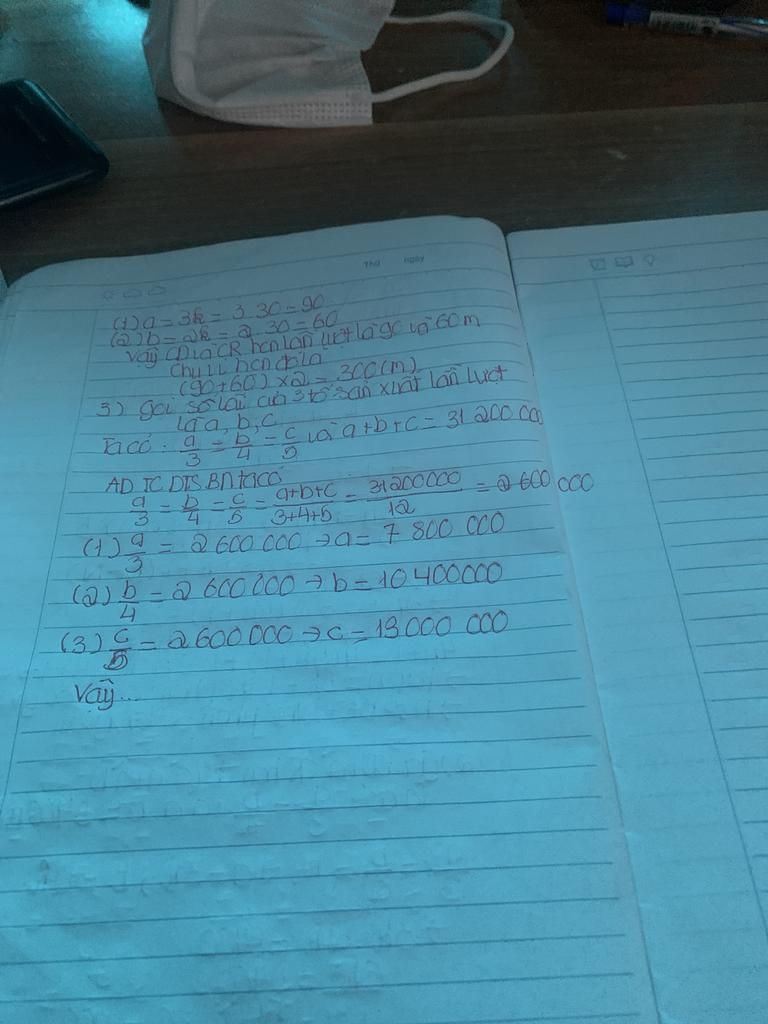 Thứ ngày
(1) a = 3k = 3.30 = 90
(2) b = 2k = 2.30 = 60
Vậy CD và CR hcn lần lượt là 90 và 60 m
Chu vi hcn đó là
(90+60) × 2 = 300 (m)
3) gọi số lãi của 3 tổ sản xuất lần lượt
là a, b, c
Ta có: a/3 = b/4 = c/5 và a+b+c = 31 200 000
AD TC DTSBN ta có
a/3 = b/4 = c/5 = a+b+c/3+4+5 = 31200000/12 = 2 600 000
(1) a/3 = 2 600 000 → a = 7 800 000
(2) b/4 = 2 600 000 → b = 10 400000
(3) c/5 = 2 600 000 → c = 13 000 000
Vậy...